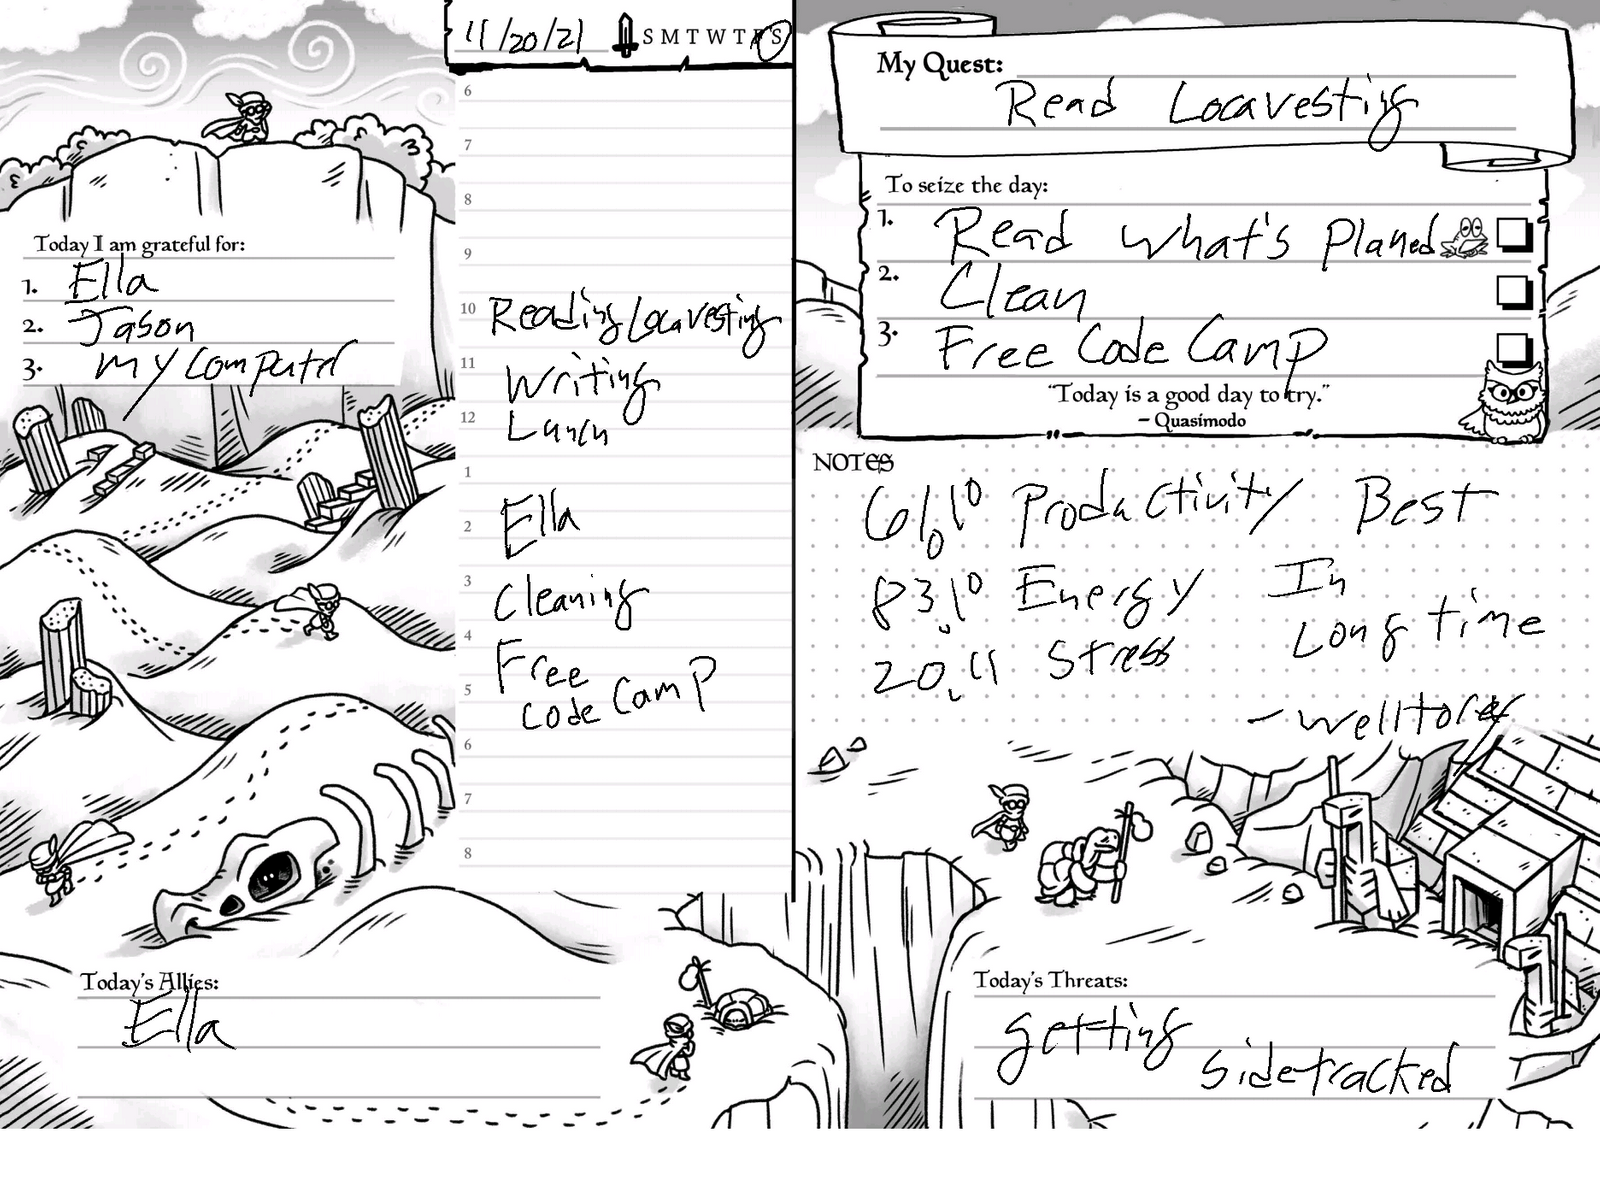 11/20/21 S M T W T F S
Today I am grateful for:
1. Ella
2. Jason
3. My Computer
6
7
8
9
10 Reading Locavesting
11 Writing
12 Lunch
1
2 Ella
3 Cleaning
4 Free
5 Code Camp
6
7
8
Today's Allies:
Ella
My Quest:
Read Locavesting
To seize the day:
1. Read What's Planed
2. Clean
3. Free Code Camp
"Today is a good day to try."
~ Quasimodo
NOTES
Productivity Best
Energy In
Stress Long time
- Welltory
Today's Threats:
getting
sidetracked